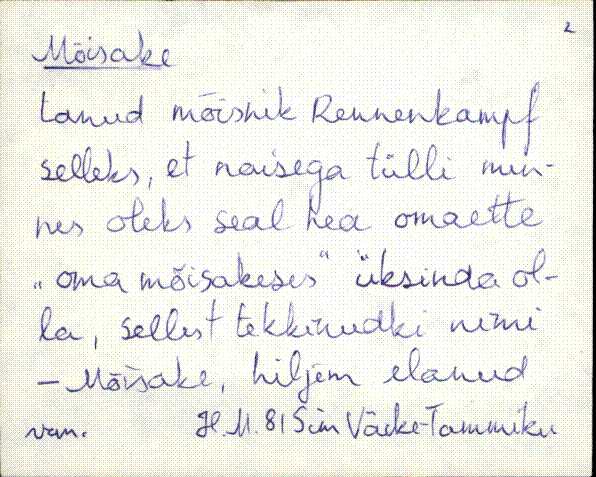 2
Mõisake
tanud mõisnik Rennenkampf
selleks, et naisega tülli min-
nes oleks seal hea omaette
"oma mõisakeses" üksinda ol-
la, sellest tekkinudki nimi
- Mõisake, hiljem elanud
H.M. 81 Sim Väike-Tammiku